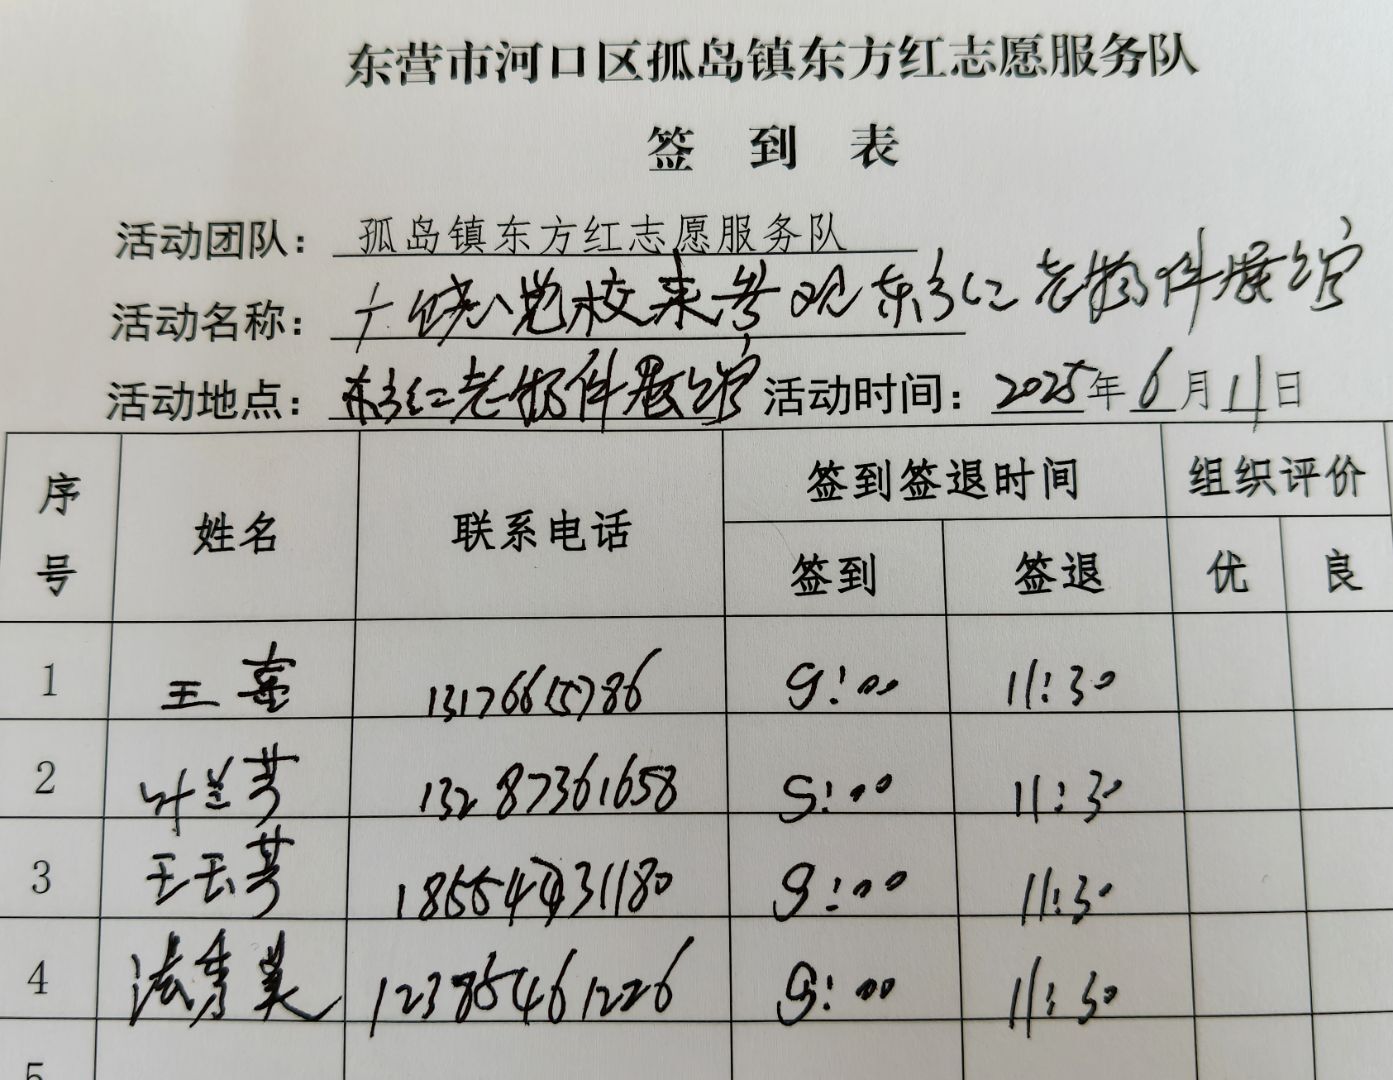 东营市河口区孤岛镇东方红志愿服务队
签 到 表
活动团队： 孤岛镇东方红志愿服务队
活动名称： 党校来参观东方红老物件展馆
活动地点： 东方红老物件展馆 活动时间： 2025年6月11日
序号 姓名 联系电话 签到签退时间 组织评价
签到 签退 优 良
1 王 13176615786 9:00 11:30
2 叶兰芳 13287361658 9:00 11:30
3 王玉芳 9:00 11:30
4 法秀美 12385461226 9:00 11:30
5